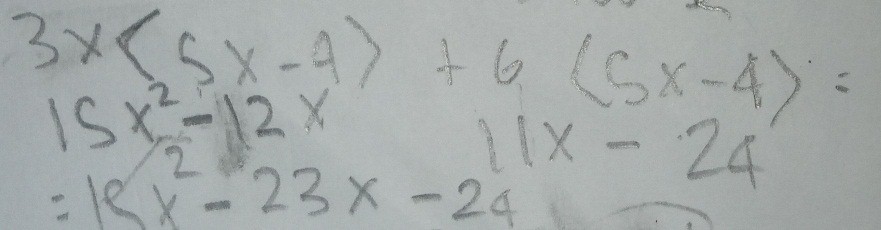 3x(5x-4) + 6 (5x-4) =
15x² - 12x 11x - 24
= 15x² - 23x - 24